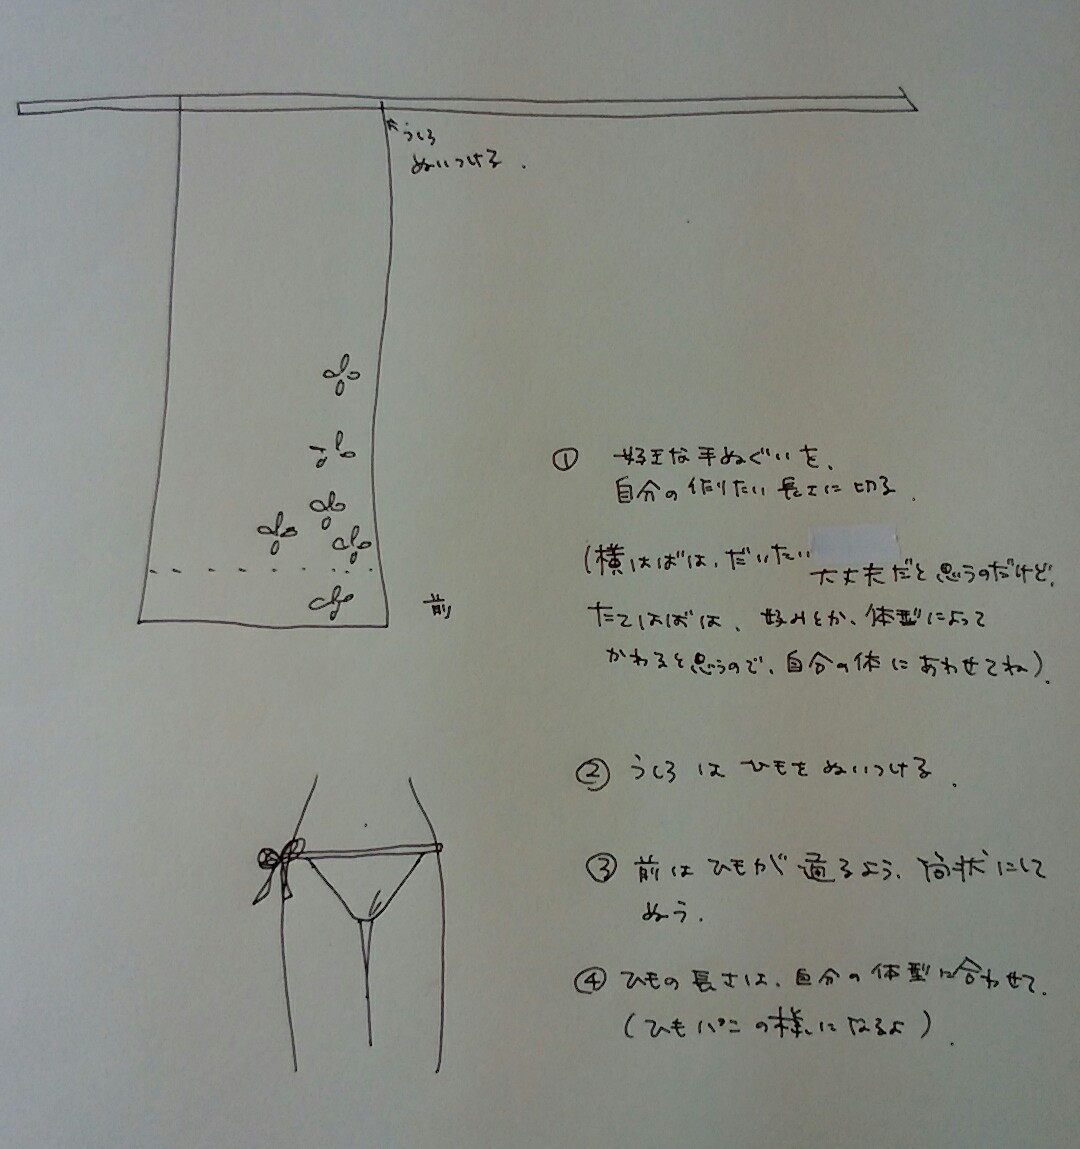 うしろ
ぬいつける.
前
① 好きな手ぬぐいを、
自分の作りたい長さに切る.
(横はばは、だいたい
大丈夫だと思うのだけど、
たてはばは、好みとか、体型によって
かわると思うので、自分の体にあわせてね).
② うしろはひもをぬいつける.
③ 前はひもが通るよう、筒状にして
ぬう.
④ ひもの長さは、自分の体型に合わせて.
(ひもパンの様になるよ).